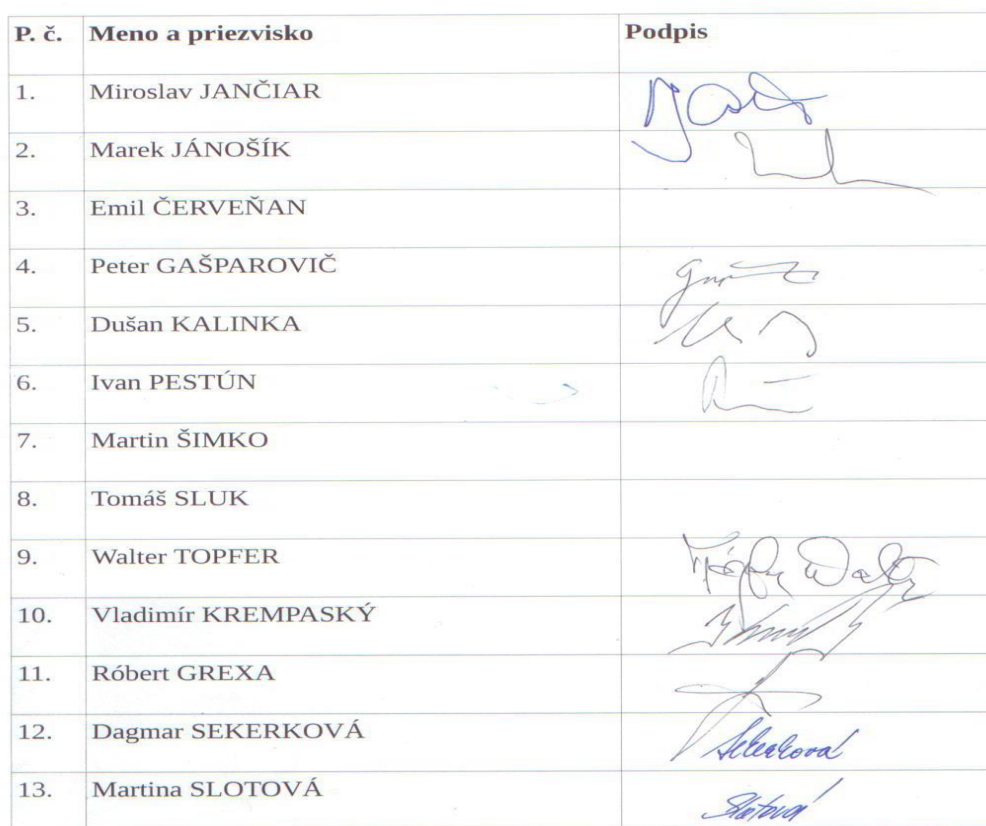 P. č. Meno a priezvisko Podpis
1. Miroslav JANČIAR
2. Marek JÁNOŠÍK
3. Emil ČERVEŇAN
4. Peter GAŠPAROVIČ
5. Dušan KALINKA
6. Ivan PESTÚN
7. Martin ŠIMKO
8. Tomáš SLUK
9. Walter TOPFER
10. Vladimír KREMPASKÝ
11. Róbert GREXA
12. Dagmar SEKERKOVÁ Sekerková
13. Martina SLOTOVÁ Slotová